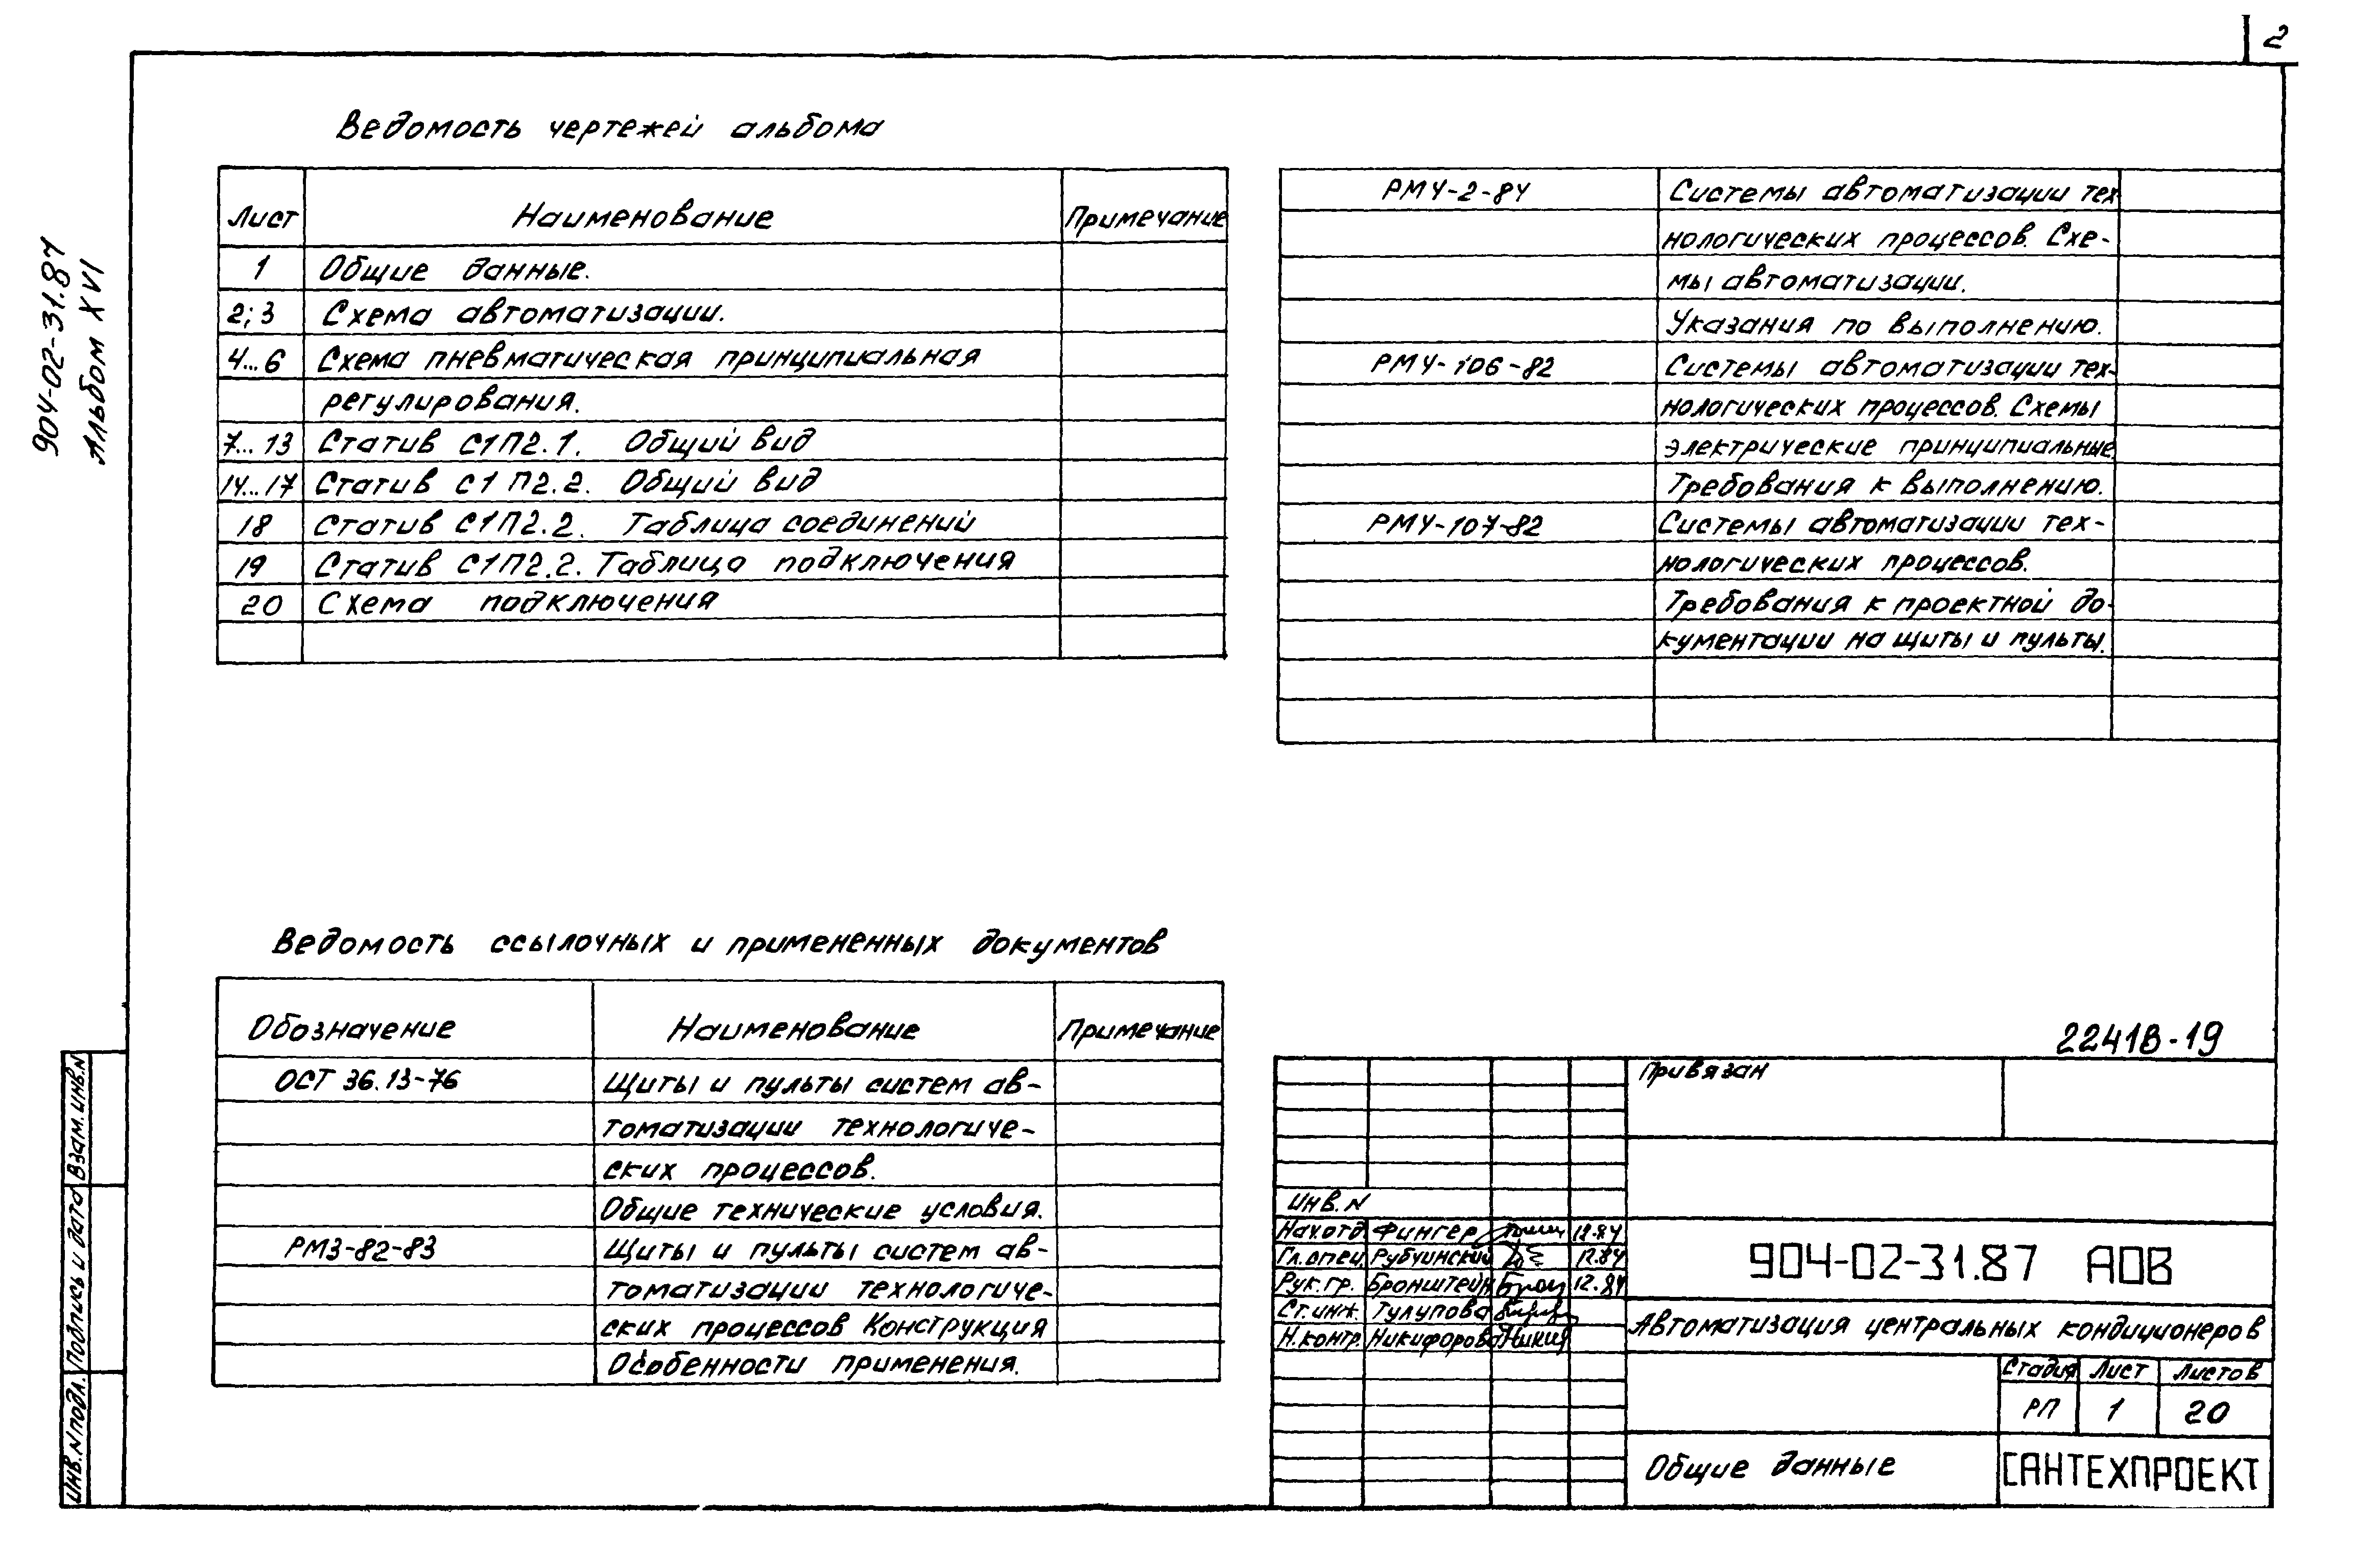 2
904-02-31.87
Альбом XVI
Ведомость чертежей альбома
Лист Наименование Примечание
1 Общие данные.
2; 3 Схема автоматизации.
4...6 Схема пневматическая принципиальная
регулирования.
7...13 Статив С1П2.1. Общий вид
14...17 Статив С1П2.2. Общий вид
18 Статив С1П2.2. Таблица соединений
19 Статив С1П2.2. Таблица подключения
20 Схема подключения
РМ4-2-84 Системы автоматизации тех-
нологических процессов. Схе-
мы автоматизации.
Указания по выполнению.
РМ4-106-82 Системы автоматизации тех-
нологических процессов. Схемы
электрические принципиальные.
Требования к выполнению.
РМ4-107-82 Системы автоматизации тех-
нологических процессов.
Требования к проектной до-
кументации на щиты и пульты.
Ведомость ссылочных и примененных документов
Обозначение Наименование Примечание
ОСТ 36.13-76 Щиты и пульты систем ав-
томатизации технологиче-
ских процессов.
Общие технические условия.
РМ3-82-83 Щиты и пульты систем ав-
томатизации технологиче-
ских процессов Конструкция
Особенности применения.
Взам. инв. N
Подпись и дата
Инв. N подл.
22418-19
Привязан
Инв. N
Нач. отд Фингер 12.84
Гл. спец. Рубчинский 12.84
Рук. гр. Бронштейн 12.84
Ст. инж. Тулупова
Н. контр. Никифорова
904-02-31.87 АОВ
Автоматизация центральных кондиционеров
Стадия Лист Листов
РП 1 20
Общие данные
САНТЕХПРОЕКТ